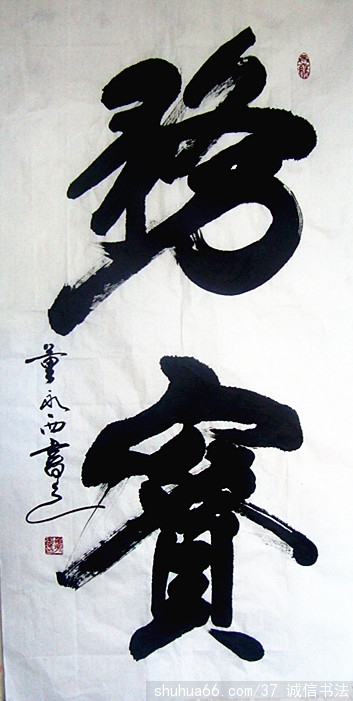 務
實
董永西書之
shuhua66.com/37 诚信书法